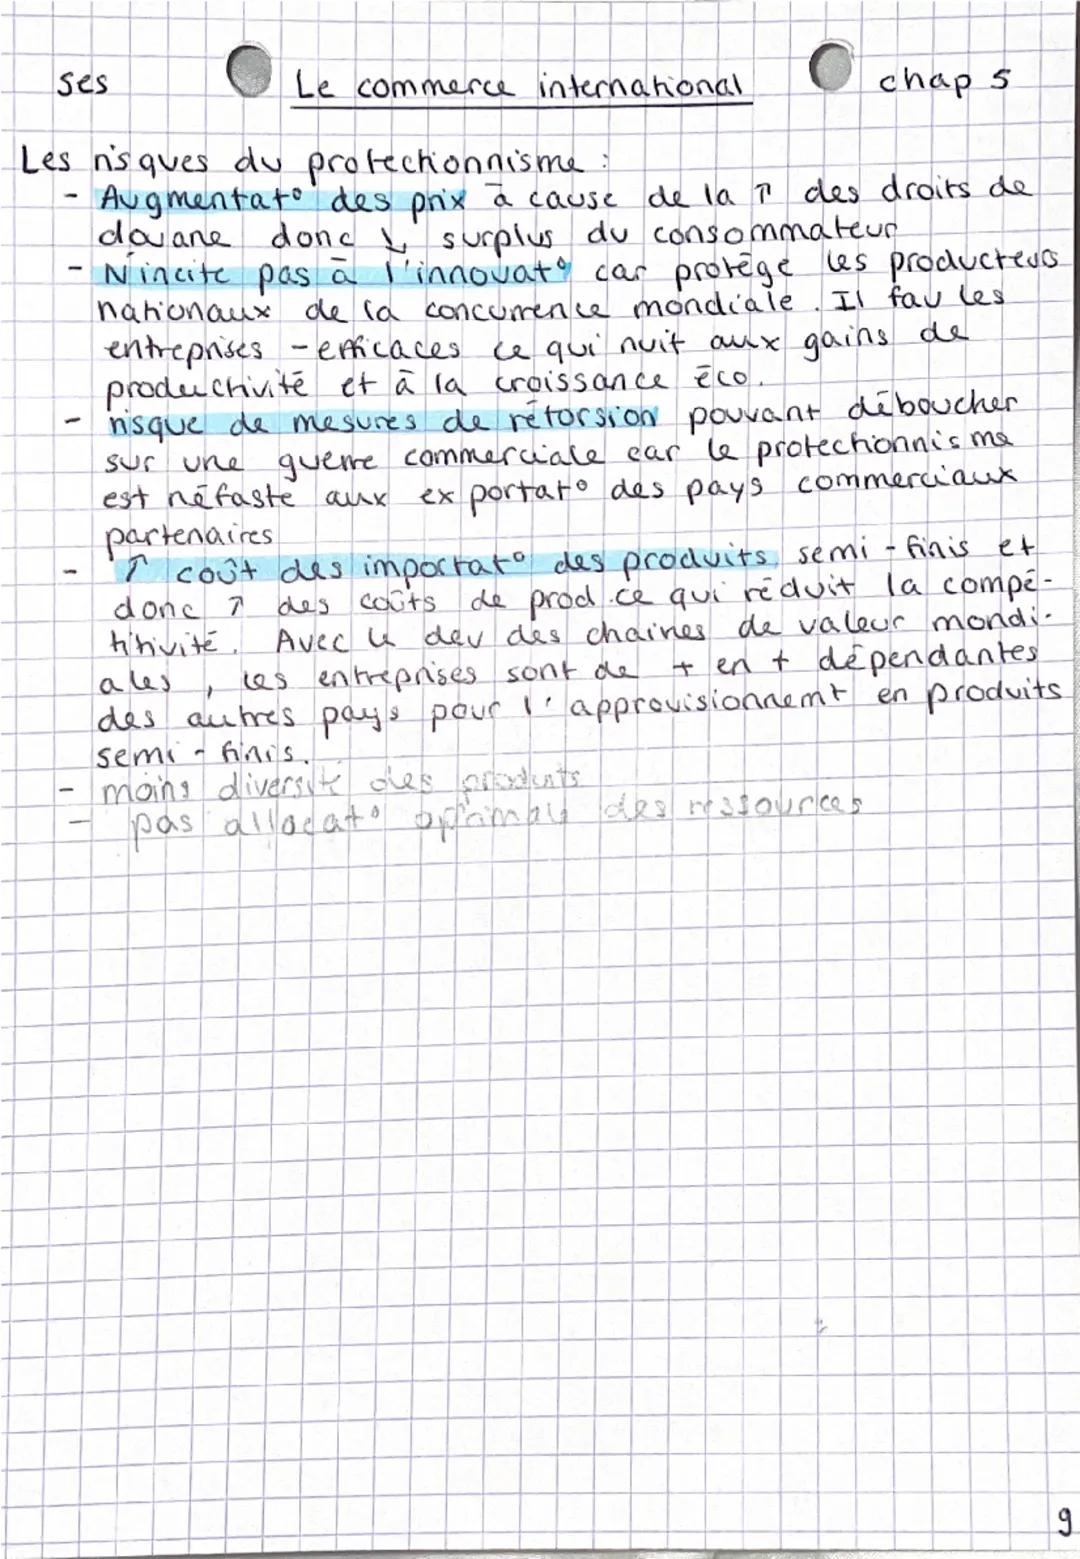 ses Le commerce international chap 5
Les risques du protectionnisme :
- Augmentat° des prix à cause de la ↑ des droits de
douane donc ↓ surplus du consommateur
- N'incite pas à l'innovat° car protège les producteurs
nationaux de la concurrence mondiale. Il fav les
entreprises - efficaces ce qui nuit aux gains de
productivité et à la croissance éco.
- risque de mesures de rétorsion pouvant déboucher
sur une guerre commerciale car le protectionnisme
est néfaste aux exportat° des pays commerciaux
partenaires
- ↑ coût des importat° des produits semi-finis et
donc ↑ des coûts de prod ce qui réduit la compé-
titivité. Avec le dev des chaines de valeur mondi-
ales, les entreprises sont de + en + dépendantes
des autres pays pour l'approvisionnemt en produits
semi-finis.
- moins diversité des produits
- pas allocat° optimale des ressources
9